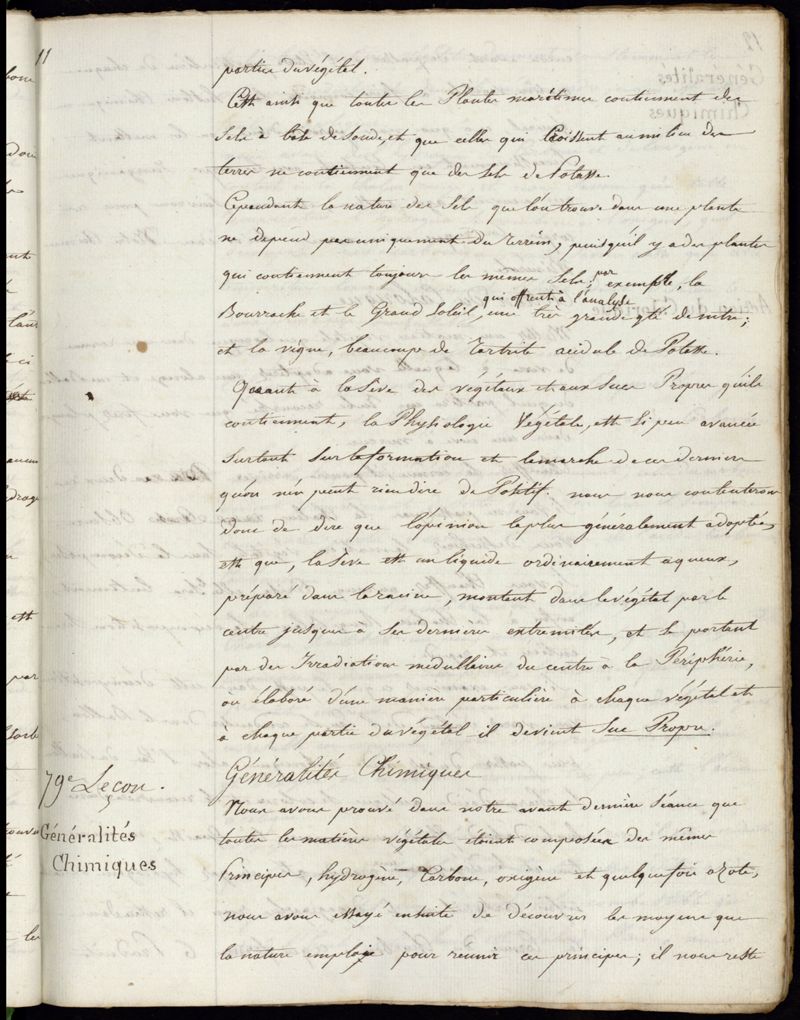 11
partie du végétal.
C'est ainsi que toutes les Plantes maritimes contiennent des
Sels à base de Soude, et que celles qui Croissent au milieu des
terres ne contiennent que des Sels de Potasse.
Cependant la nature des Sels que l'on trouve dans une plante
ne depend pas uniquement du terrein, puisqu'il y a des plantes
qui contiennent toujours les mêmes Sels; par exemple, la
Bourrache et le Grand Soleil, qui offrent à l'analyse une très grande qté de nitre;
et la vigne, beaucoup de Tartrite acidule de Potasse.
Quant à la Sève des végétaux et aux Sucs Propres qu'ils
contiennent, la Physiologie Végétale, est Si peu avancée
Surtout Sur la formation et la marche de ces derniers
qu'on n'en peut rien dire de Positif. nous nous contenterons
donc de dire que l'opinion la plus généralement adoptée,
est que, la Sève est un liquide ordinairement aqueux,
préparé dans la racine, montant dans le végétal par le
centre jusques à Ses dernieres extremités, et Se portant
par des Irradiations médullaires du centre à la Periphérie,
où élaboré d'une manière particulière à chaque végétal et
à chaque partie du végétal il devient Suc Propre.
79e Leçon.
Généralités Chimiques
Généralités Chimiques
Nous avons prouvé dans notre avant dernière Séance que
toutes les matières végétales étoient composées des mêmes
Principes, hydrogène, Carbone, oxigène et quelquefois azote,
nous avons essayé ensuite de découvrir les moyens que
la nature emploie pour reunir ces principes; il nous reste